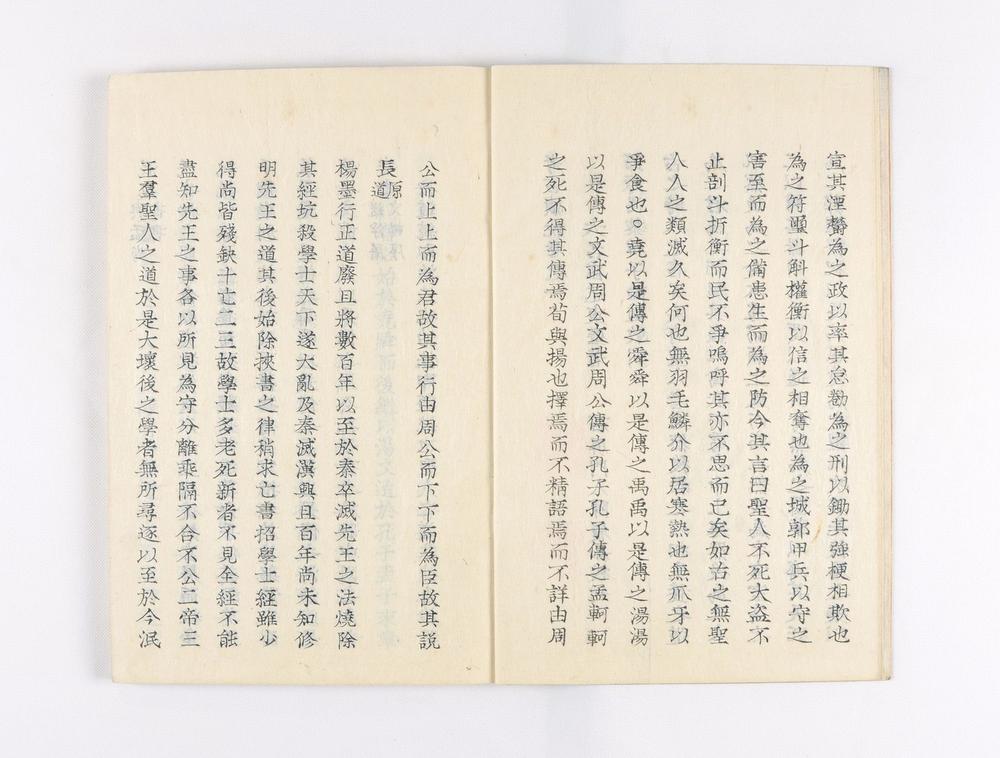 宣其湮鬱為之政以率其怠勌為之刑以鋤其強梗相欺也
為之符璽斗斛權衡以信之相奪也為之城郭甲兵以守之
害至而為之備患生而為之防今其言曰聖人不死大盗不
止剖斗折衡而民不爭嗚呼其亦不思而已矣如古之無聖
人人之類滅久矣何也無羽毛鱗介以居寒熱也無爪牙以
爭食也○堯以是傳之舜舜以是傳之禹禹以是傳之湯湯
以是傳之文武周公文武周公傳之孔子孔子傳之孟軻軻
之死不得其傳焉荀與揚也擇焉而不精語焉而不詳由周
公而上上而為君故其事行由周公而下下而為臣故其説
長原道
楊墨行正道廢且將數百年以至於秦卒滅先王之法燒除
其經坑殺學士天下遂大亂及秦滅漢興且百年尚未知修
明先王之道其後始除挾書之律稍求亡書招學士經雖少
得尚皆殘缺十亡二三故學士多老死新者不見全經不能
盡知先王之事各以所見為守分離乖隔不合不公二帝三
王羣聖人之道於是大壞後之學者無所尋逐以至於今泯